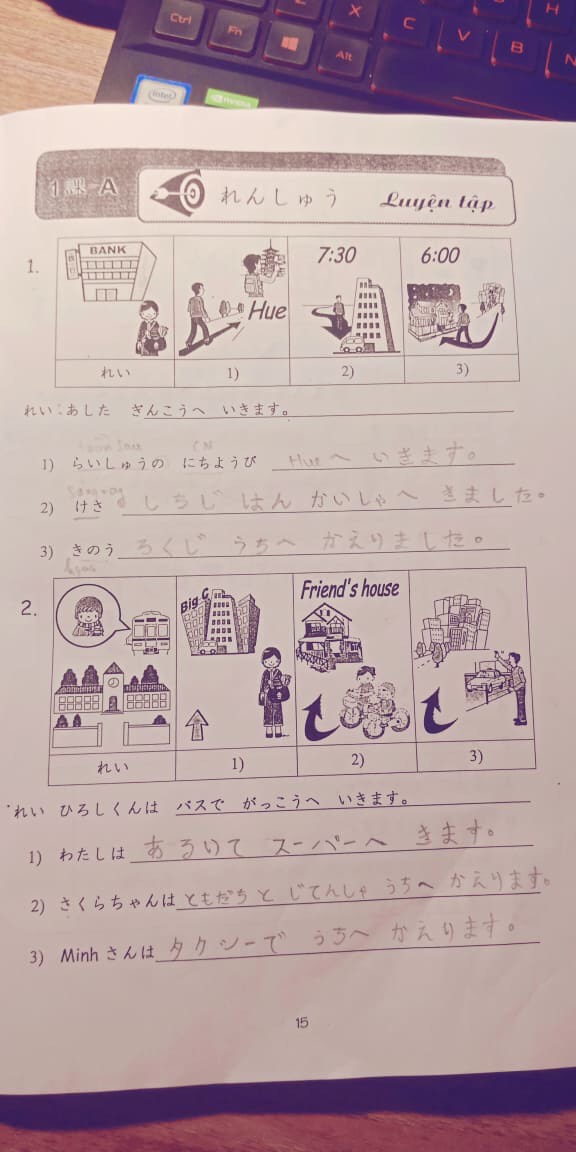 Ctrl
Fn
Alt
X
C
V
B
N
H
intel
NVIDIA
1課-A
れんしゅう Luyện tập
1.
BANK
Hue
7:30
6:00
れい 1) 2) 3)
れい:あした ぎんこうへ いきます。
1) らいしゅうの にちようび Hueへ いきます。
2) けさ しちじ はん かいしゃへ きました。
3) きのう ろくじ うちへ かえりました。
2.
Big C
Friend's house
れい 1) 2) 3)
れい ひろしくんは バスで がっこうへ いきます。
1) わたしは あるいて スーパーへ きます。
2) さくらちゃんは ともだちと じてんしゃ うちへ かえります。
3) Minhさんは タクシーで うちへ かえります。
15